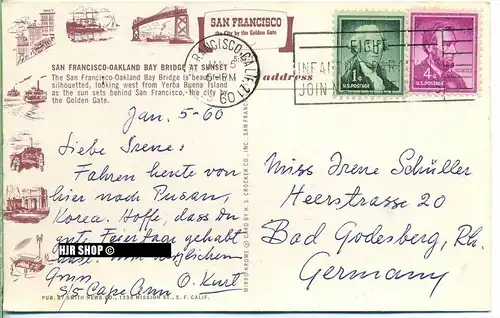 SAN FRANCISCO
the City by the Golden Gate
SAN FRANCISCO-OAKLAND BAY BRIDGE AT SUNSET
The San Francisco-Oakland Bay Bridge is beautifully
silhouetted, looking west from Yerba Buena Island
as the sun sets behind San Francisco, the city by
the Golden Gate.
address
SAN FRANCISCO CALIF.
JAN 5
6-PM
1960
FIGHT
INFANTILE PARALYSIS
JOIN
1¢
U.S. POSTAGE
4¢
U.S. POSTAGE
Jan. 5-60
Liebe Irene:
Fahren heute von
hier nach Pusan,
Korea. Hoffe, dass du
gute Feiertage gehabt
hast. Mit herzlichem
Gruss
O. Kurt
S/S Cape Ann
HJR SHOP ©
MIRRO-KROME ® CARD BY H. S. CROCKER CO., INC. SAN FRANCISCO
Miss Irene Schüller
Heerstrasse 20
Bad Godesberg, Rh.
Germany
PUB. BY SMITH NEWS CO., 1338 MISSION ST., S. F. CALIF.